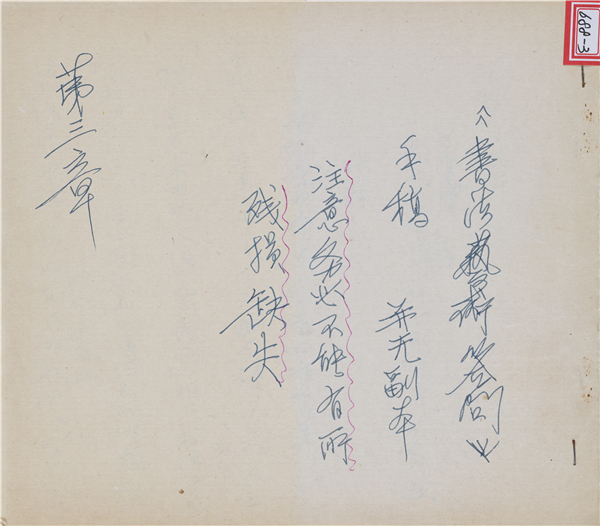 688-3
《書法藝術答问》
手稿 并无副本
注意务必不能有所
残损缺失
第三章